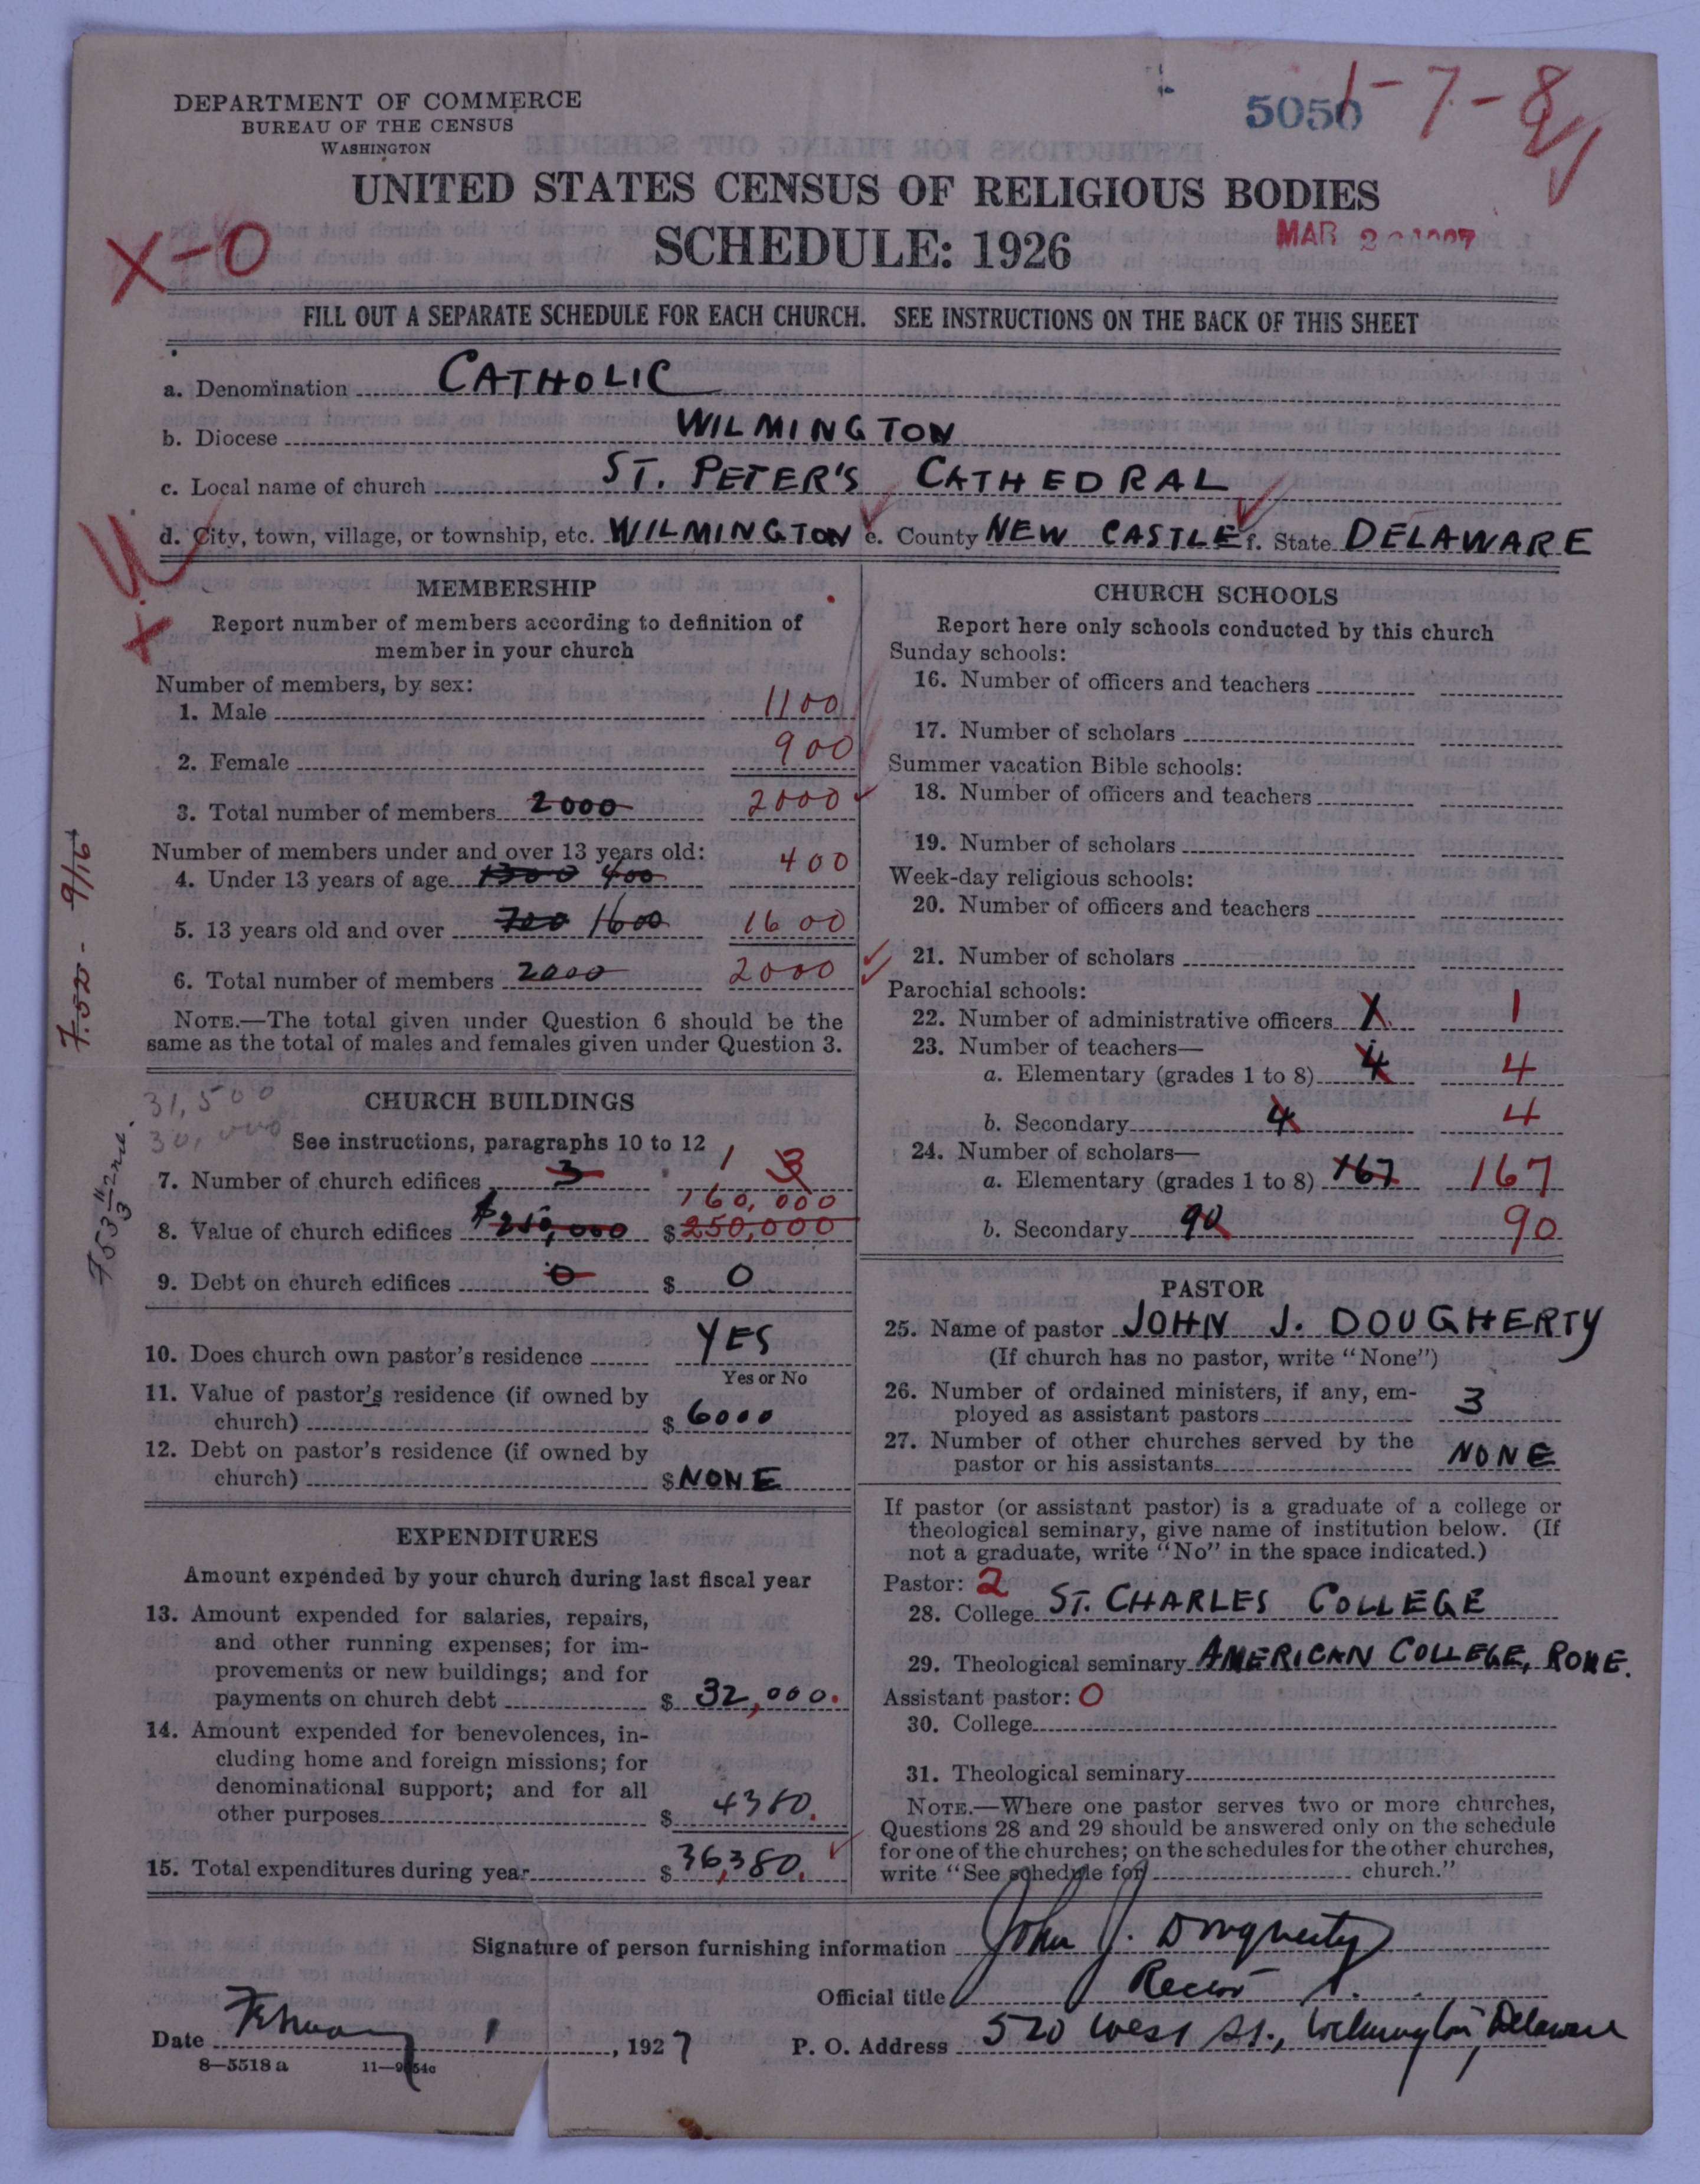 DEPARTMENT OF COMMERCE
BUREAU OF THE CENSUS
WASHINGTON
5050
1-7-8
UNITED STATES CENSUS OF RELIGIOUS BODIES
SCHEDULE: 1926
X-0
MAR
FILL OUT A SEPARATE SCHEDULE FOR EACH CHURCH. SEE INSTRUCTIONS ON THE BACK OF THIS SHEET
a. Denomination CATHOLIC
b. Diocese WILMINGTON
c. Local name of church ST. PETER'S CATHEDRAL
d. City, town, village, or township, etc. WILMINGTON e. County NEW CASTLE f. State DELAWARE
MEMBERSHIP
Report number of members according to definition of
member in your church
Number of members, by sex:
1. Male 1100
2. Female 900
3. Total number of members 2000 2000
Number of members under and over 13 years old:
4. Under 13 years of age 1300 400 400
5. 13 years old and over 700 1600 1600
6. Total number of members 2000 2000
NOTE.—The total given under Question 6 should be the
same as the total of males and females given under Question 3.
7.50 - 9/16
31,500
30,000
CHURCH BUILDINGS
See instructions, paragraphs 10 to 12
7. Number of church edifices 3 1 3
160,000
8. Value of church edifices $250,000 $250,000
9. Debt on church edifices 0 $ 0
10. Does church own pastor's residence YES
Yes or No
11. Value of pastor's residence (if owned by
church) $ 6000
12. Debt on pastor's residence (if owned by
church) $ NONE
EXPENDITURES
Amount expended by your church during last fiscal year
13. Amount expended for salaries, repairs,
and other running expenses; for im-
provements or new buildings; and for
payments on church debt $ 32,000.
14. Amount expended for benevolences, in-
cluding home and foreign missions; for
denominational support; and for all
other purposes $ 4380.
15. Total expenditures during year $ 36,380.
CHURCH SCHOOLS
Report here only schools conducted by this church
Sunday schools:
16. Number of officers and teachers
17. Number of scholars
Summer vacation Bible schools:
18. Number of officers and teachers
19. Number of scholars
Week-day religious schools:
20. Number of officers and teachers
21. Number of scholars
Parochial schools:
22. Number of administrative officers 1 1
23. Number of teachers—
a. Elementary (grades 1 to 8) 4 4
b. Secondary 4 4
24. Number of scholars—
a. Elementary (grades 1 to 8) 167 167
b. Secondary 90 90
PASTOR
25. Name of pastor JOHN J. DOUGHERTY
(If church has no pastor, write "None")
26. Number of ordained ministers, if any, em-
ployed as assistant pastors 3
27. Number of other churches served by the
pastor or his assistants NONE
If pastor (or assistant pastor) is a graduate of a college or
theological seminary, give name of institution below. (If
not a graduate, write "No" in the space indicated.)
Pastor: 2
28. College ST. CHARLES COLLEGE
29. Theological seminary AMERICAN COLLEGE, ROME.
Assistant pastor: 0
30. College
31. Theological seminary
NOTE.—Where one pastor serves two or more churches,
Questions 28 and 29 should be answered only on the schedule
for one of the churches; on the schedules for the other churches,
write "See schedule for church."
Signature of person furnishing information John J. Dougherty
Official title Rector
Date February 1, 1927 P. O. Address 520 West St., Wilmington, Delaware
8—5518 a